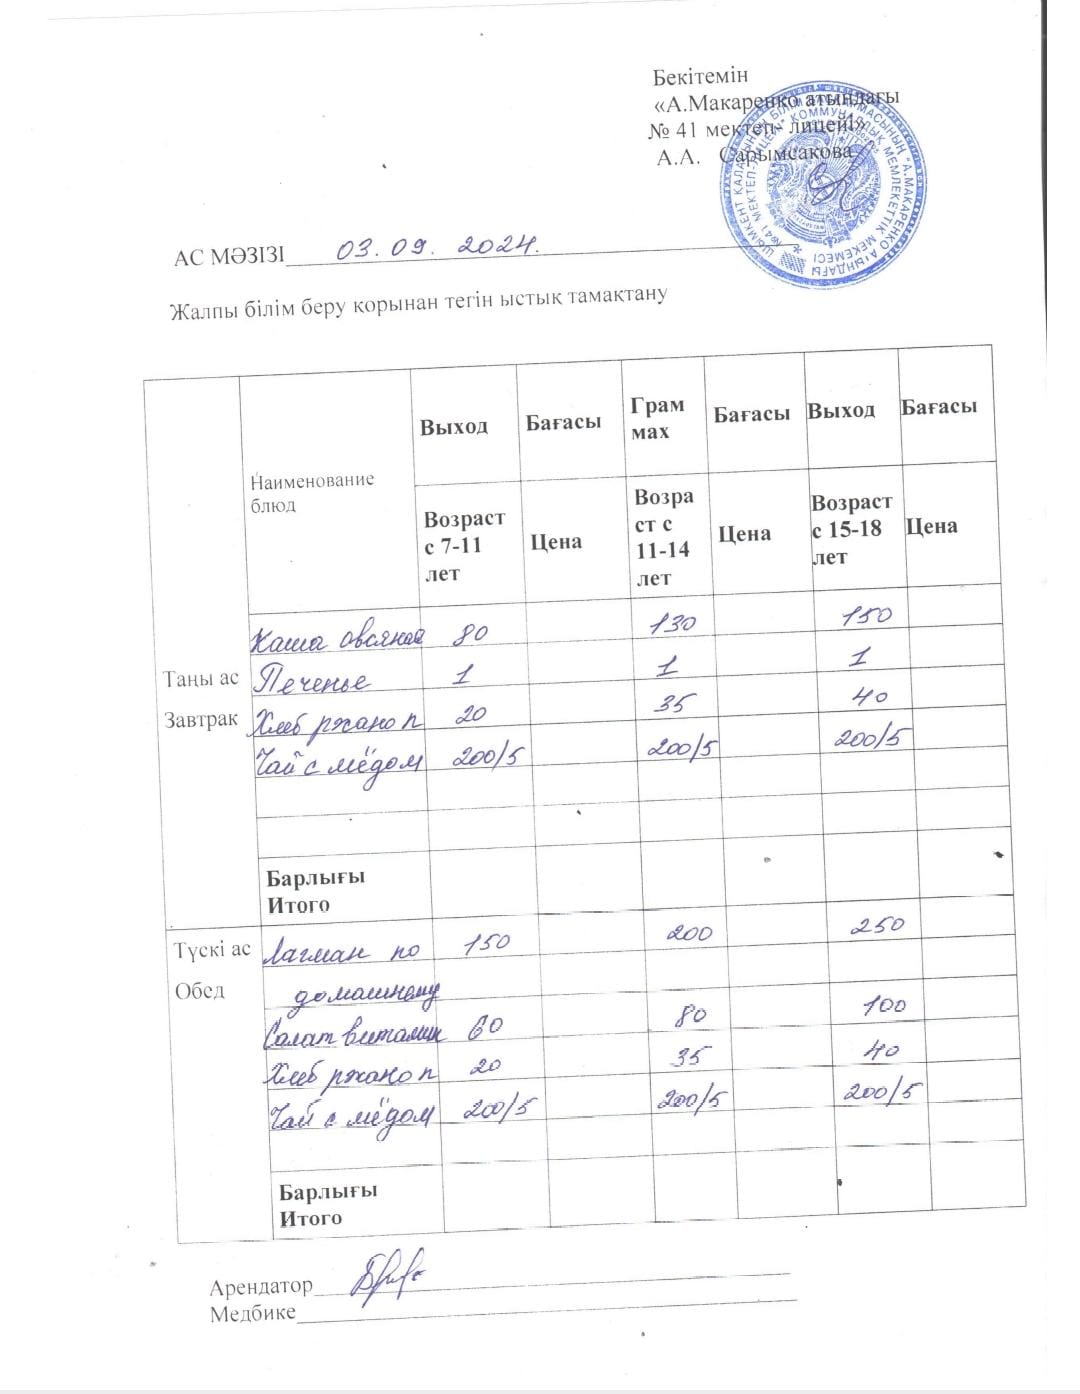 Бекітемін
«А.Макаренко атындағы
№ 41 мектеп- лицейі»
А.А. Сарымсакова
ШЫМКЕНТ ҚАЛАСЫНЫҢ БІЛІМ БАСҚАРМАСЫНЫҢ "А.МАКАРЕНКО АТЫНДАҒЫ
№41 МЕКТЕП-ЛИЦЕЙІ" КОММУНАЛДЫҚ МЕМЛЕКЕТТІК МЕКЕМЕСІ
АС МӘЗІЗІ 03.09.2024.
Жалпы білім беру қорынан тегін ыстық тамақтану
Наименование блюд
Выход Бағасы Грам мах Бағасы Выход Бағасы
Возраст с 7-11 лет Цена Возра ст с 11-14 лет Цена Возраст с 15-18 лет Цена
Таңы ас
Завтрак
Каша овсяная 80 130 150
Печенье 1 1 1
Хлеб ржано п 20 35 40
Чай с мёдом 200/5 200/5 200/5
Барлығы
Итого
Түскі ас
Обед
Лагман по 150 200 250
домашнему
Салат витамин 60 80 100
Хлеб ржано п 20 35 40
Чай с мёдом 200/5 200/5 200/5
Барлығы
Итого
Арендатор
Медбике